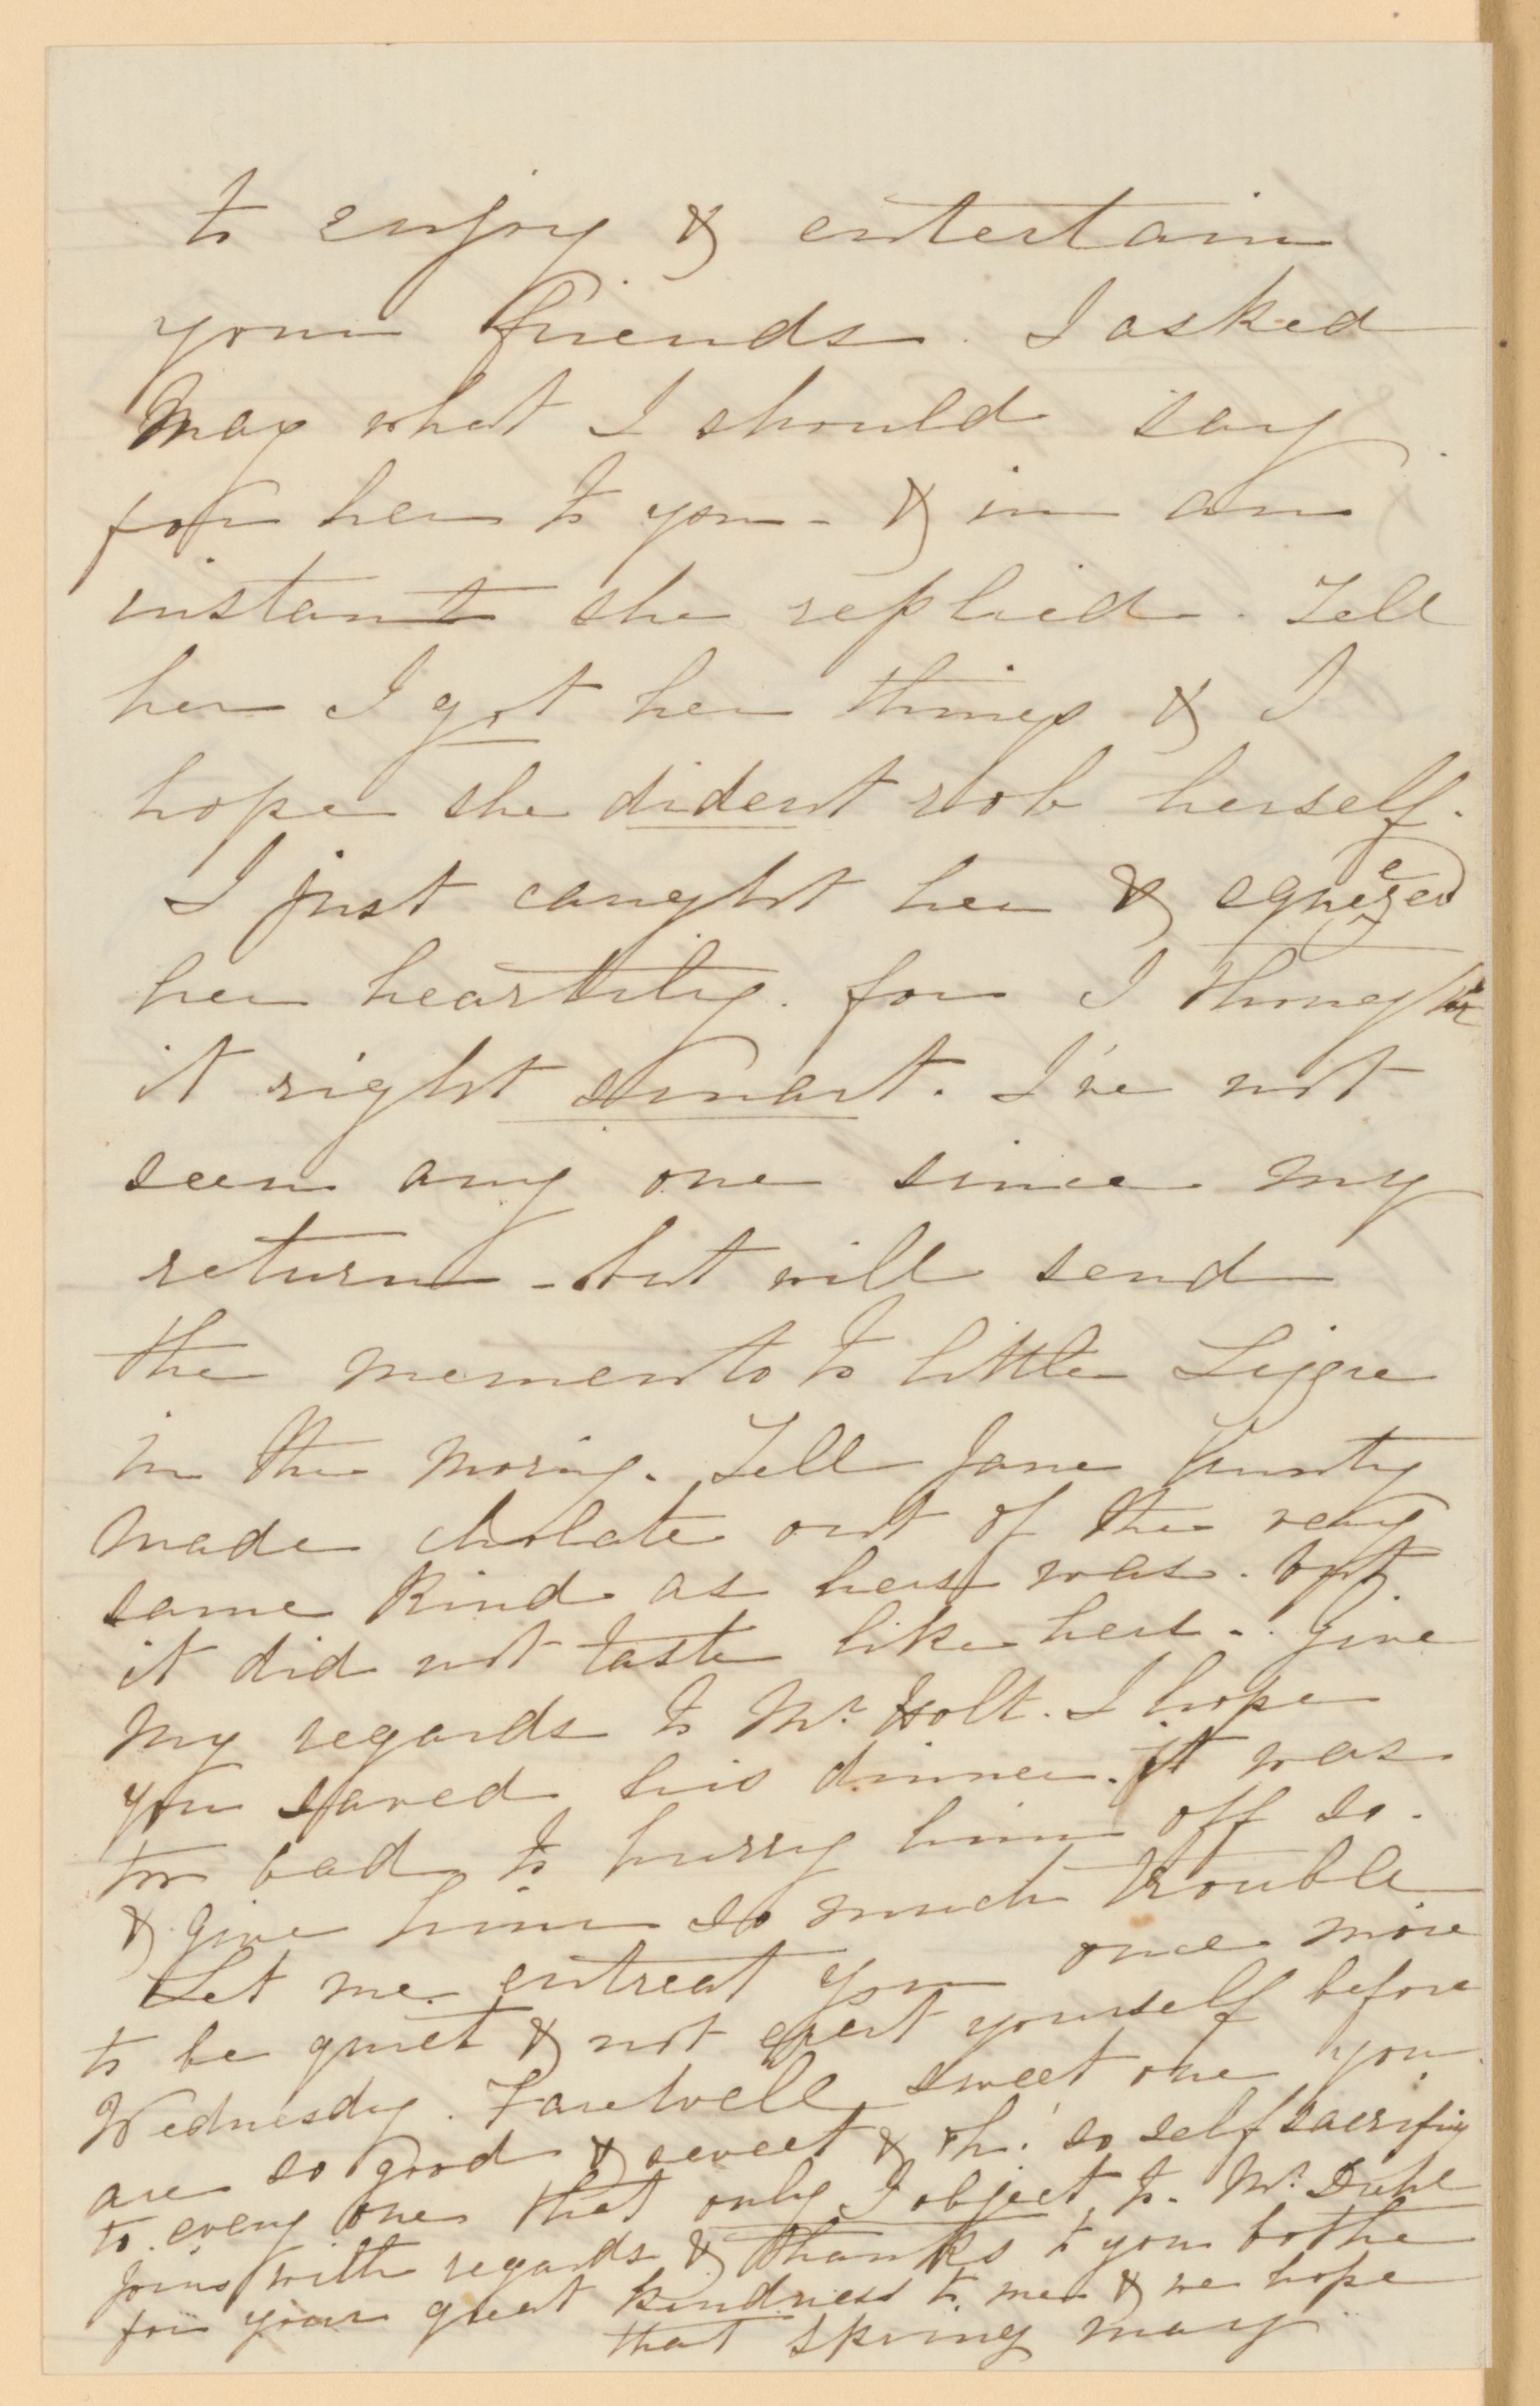 to enjoy & entertain
your friends. I asked
May what I should say
for her to you - & in an
instant she replied. Tell
her I got her things & I
hope she dident rob herself.
I just caught her & squezed
her heartily. for I thought
it right smart. I've not
seen any one since my
return - but will send
the memento to little Lizzie
in the moring. Tell Jane Aunty
made cholate out of the very
same kind as hers was. but
it did not taste like hers - Give
my regards to Mr. Holt. I hope
you saved his dinner. it was
too bad to hurry him off so.
& give him so much trouble
Let me entreat you once more
to be quiet & not exert yourself before
Wednesday. Farewell sweet one you
are so good & sweet & oh! so self sacrifing
to every one that only I object to. Mr.
joins with regards & thanks to you bothe
for your great kindness to me & we hope
that spring may